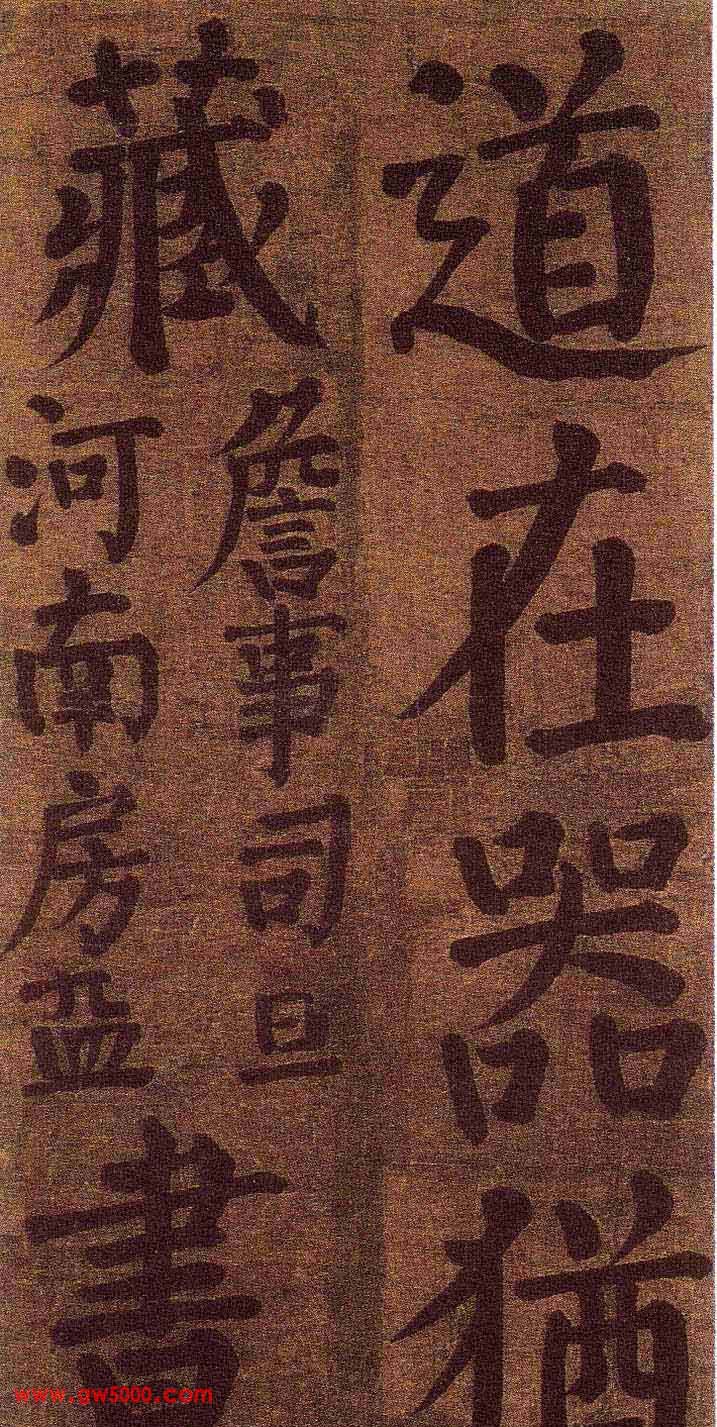 道在器猶
藏
詹事司旦
河南房
書
www.gw5000.com